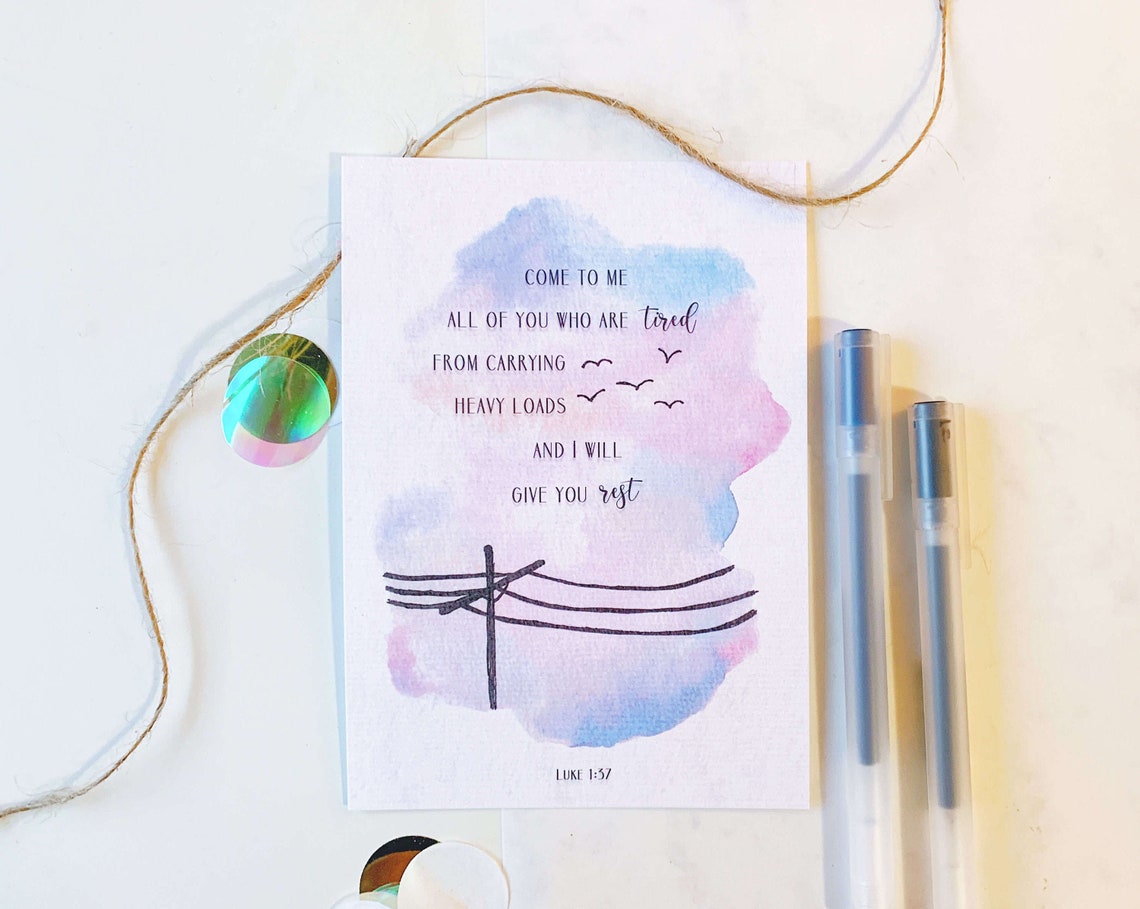 COME TO ME
ALL OF YOU WHO ARE tired
FROM CARRYING
HEAVY LOADS
AND I WILL
GIVE YOU rest
LUKE 1:37